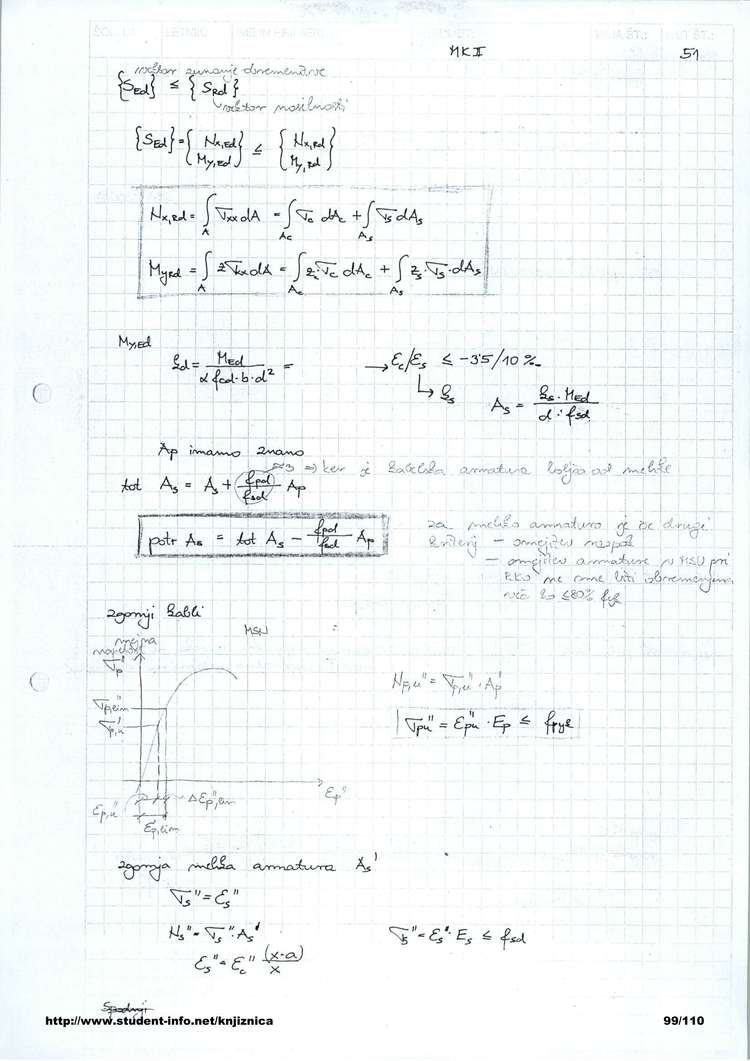 MK II 51
vektor zunanje obremenitve
{S_Ed} ≤ {S_Rd}
vektor nosilnosti
{S_Ed} = {N_x,Ed M_y,Ed} ≤ {N_x,Rd M_y,Rd}
N_x,Rd = ∫_A σ_xx dA = ∫_Ac σ_c dA_c + ∫_As σ_s dA_s
M_y,Rd = ∫_A z σ_xx dA = ∫_Ac z_c·σ_c dA_c + ∫_As z_s·σ_s·dA_s
M_y,Ed
k_d = M_Ed / (α f_cd·b·d²) = → ε_c/ε_s ≤ -3'5/10 ‰
↳ k_s A_s = k_s·M_Ed / (d·f_sd)
A_p imamo znano
≈3 ⇒ ker je kabelska armatura boljša od mehke
tot A_s = A_s + (f_pd/f_sd) A_p
potr A_s = tot A_s - (f_pd/f_sd) A_p
za mehko armaturo je še drugi
kriterij - omejitev razpok
- omejitev armature v MSU pri
ne sme biti obremenjena
več ko ≤80% f_yk
zgornji kabli
mejna
MSN
σ_p'
σ_p,lim''
σ_p,u'
N_p,u'' = σ_p,u''·A_p'
σ_pu'' = ε_pu''·E_p ≤ f_pyd
ε_p''
ε_p,u'' Δε_p'',lim
ε_p,lim''
zgornja mehka armatura A_s'
σ_s'' = ε_s''
N_s'' = σ_s''·A_s' σ_s'' = ε_s''·E_s ≤ f_sd
ε_s'' = ε_c'' (x-a)/x
Spodnji
http://www.student-info.net/knjiznica 99/110